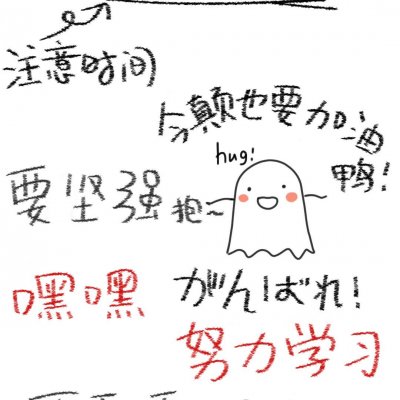 注意时间
今颠也要加油鸭!
hug!
要坚强 抱~
嘿嘿
がんばれ!
努力学习